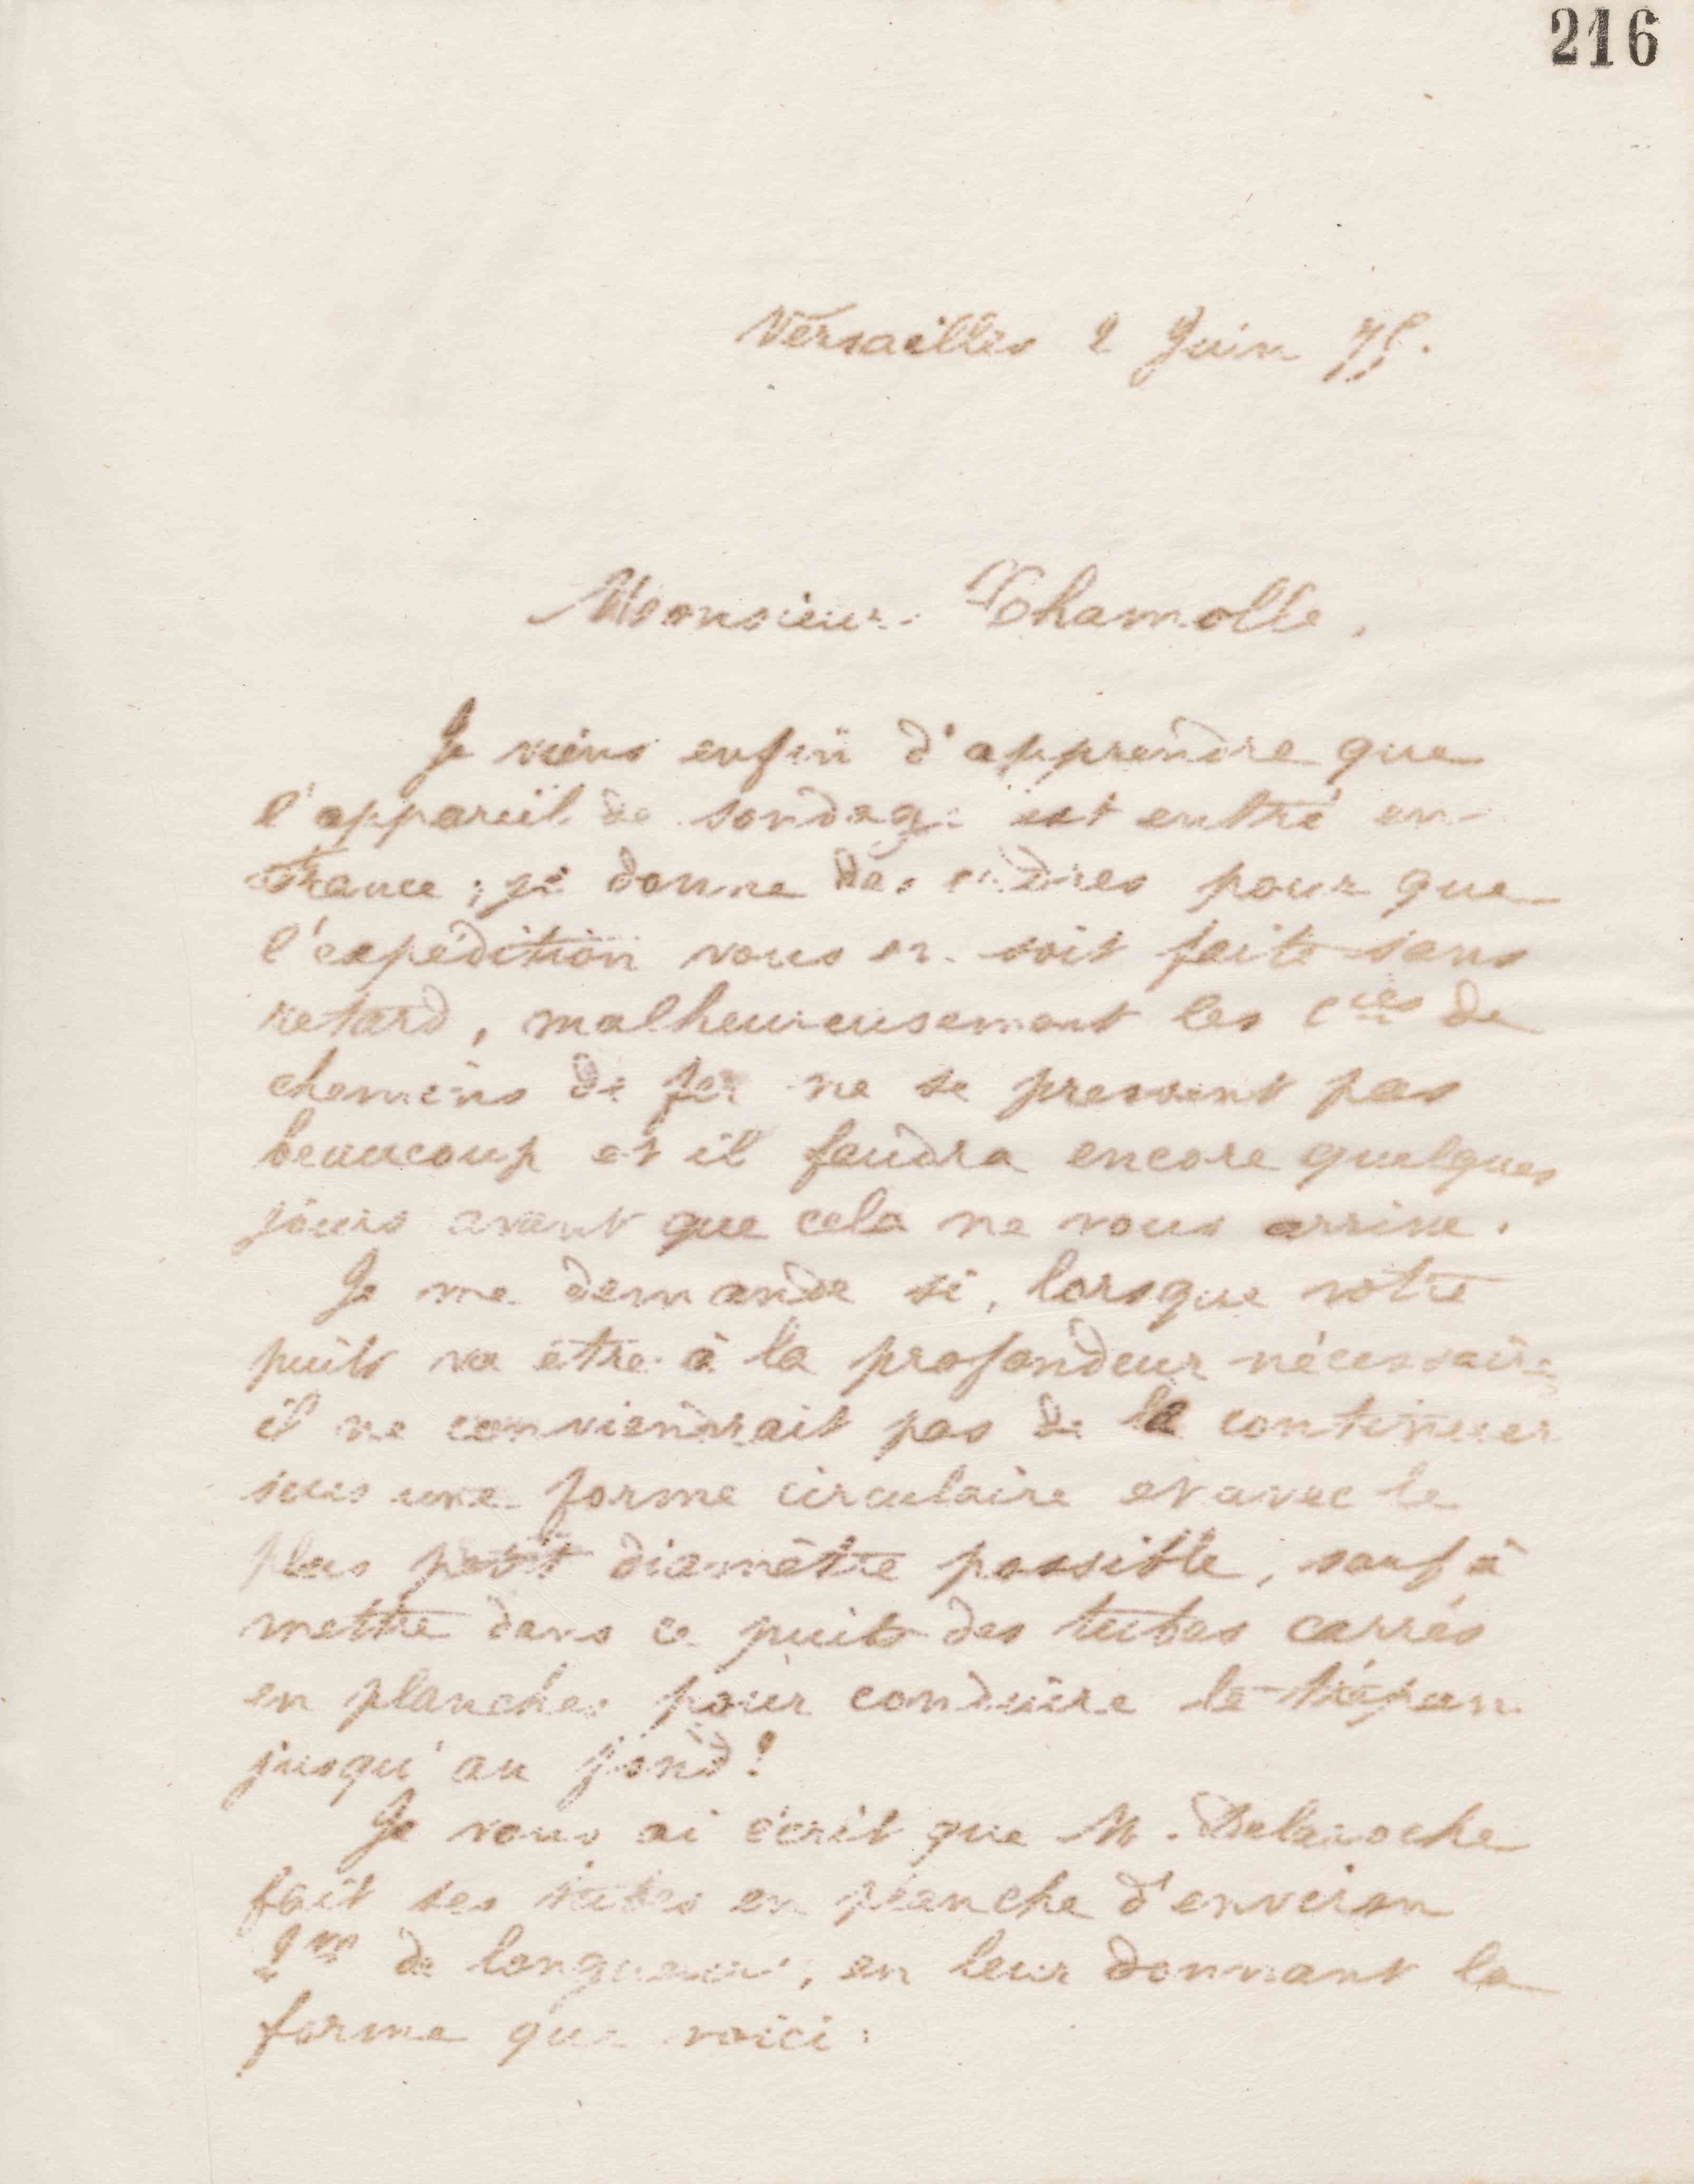 216
Versailles 2 Juin 75.
Monsieur Chamolle,
Je viens enfin d'apprendre que
l'appareil de sondage est entré en
France ; je donne des ordres pour que
l'expédition vous en soit faite sans
retard, malheureusement les Cies de
chemins de fer ne se pressent pas
beaucoup et il faudra encore quelques
jours avant que cela ne vous arrive.
Je me demande si, lorsque votre
puits va être à la profondeur nécessaire
il ne conviendrait pas de le continuer
sous une forme circulaire et avec le
plus petit diamètre possible, sauf à
mettre dans ce puits des tubes carrés
en planches pour conduire le trépan
jusqu'au fond !
Je vous ai écrit que M. Delaroche
fait ses tubes en planche d'environ
2m de longueur, en leur donnant la
forme que voici :